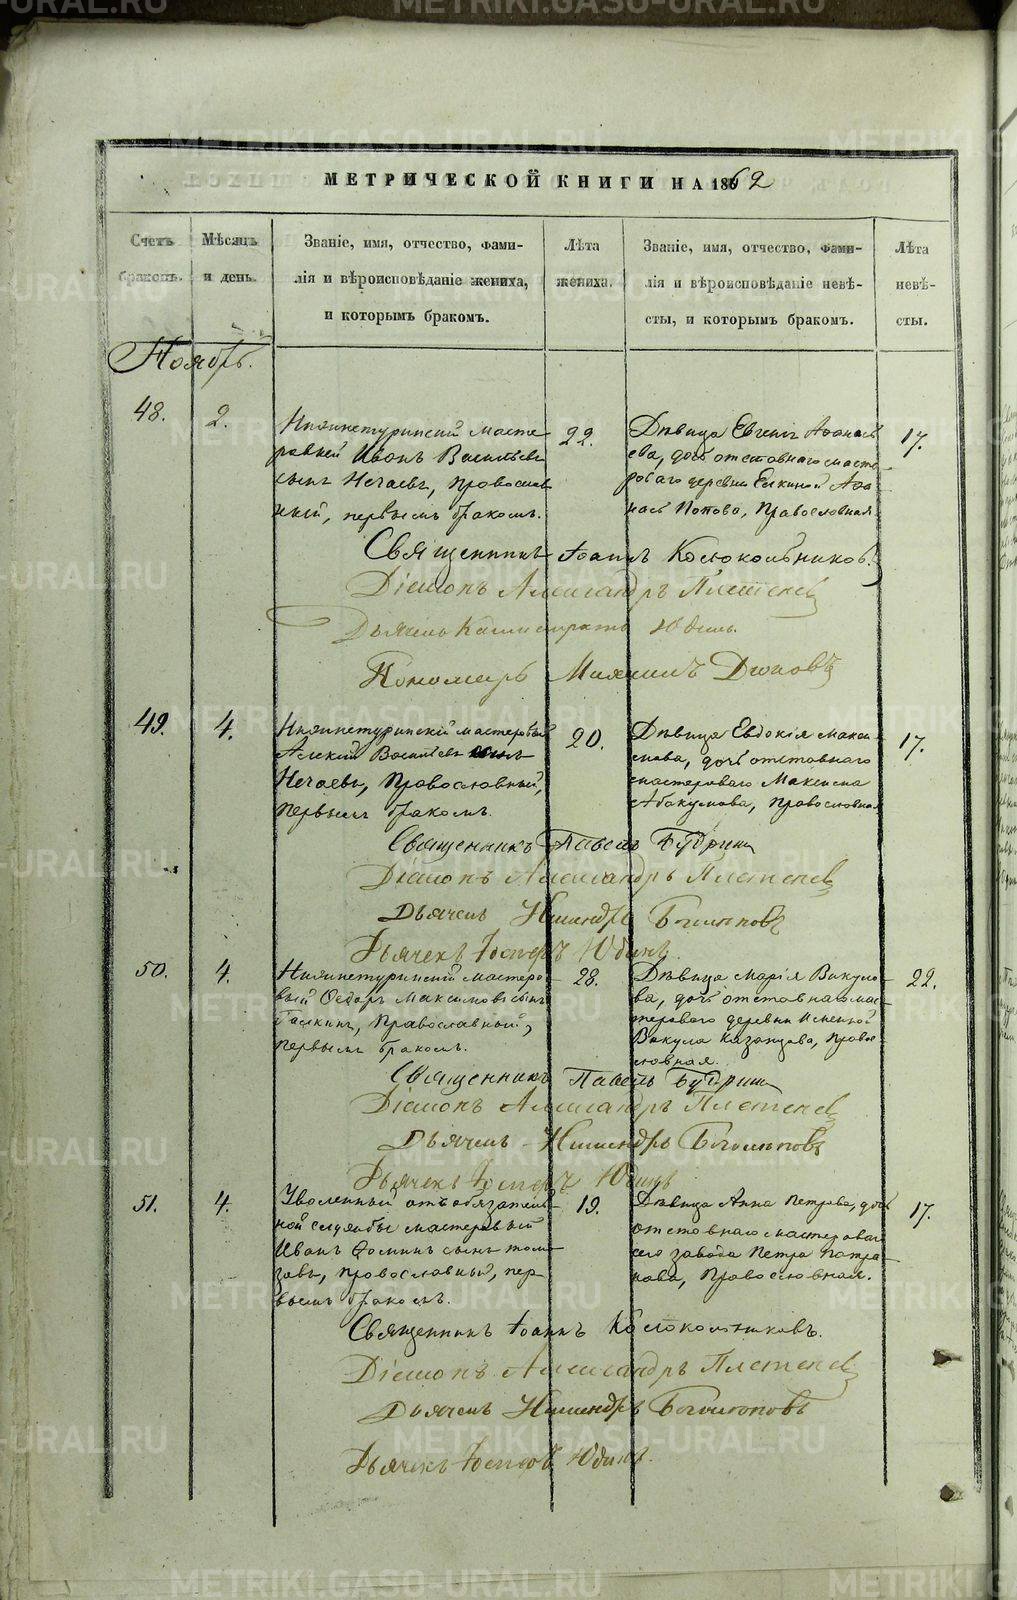 МЕТРИЧЕСКОЙ КНИГИ НА 1862
Счетъ браковъ.
Мѣсяцъ и день.
Званіе, имя, отчество, фами-
лія и вѣроисповѣданіе жениха,
и которымъ бракомъ.
Лѣта
жениха.
Званіе, имя, отчество, фами-
лія и вѣроисповѣданіе невѣ-
сты, и которымъ бракомъ.
Лѣта
невѣ-
сты.
Ноябрь.
48.
2.
Нижнетуринскій масте
ровый Иванъ Васильевъ
сынъ Нечаевъ, Православ
ный, первымъ бракомъ.
22.
Дѣвица Евгенія Аѳанась
ева, дочь отставнаго масте
роваго деревни Елкиной Аѳа
насія Попова, Православная.
17.
Священникъ Іоаннъ Колокольниковъ.
Діаконъ Александръ Плетеневъ
Дьячекъ Каллистратъ Юдинъ.
Пономарь
49.
4.
Нижнетуринскій мастеровый
Алексѣй Васильевъ сынъ
Нечаевъ, Православный,
первымъ бракомъ.
20.
Дѣвица Евдокія Макси
мова, дочь отставнаго
мастероваго Максима
Абакумова, Православная
17.
Священникъ Павелъ Будринъ
Діаконъ Александръ Плетеневъ
Дьячекъ Боголюповъ
Дьячекъ Іосифъ Юдинъ.
50.
4.
Нижнетуринскій мастеро
вый Ѳедоръ Максимовъ сынъ
Галкинъ, Православный,
первымъ бракомъ.
28.
Дѣвица Марія Викуло
ва, дочь отставнаго мас
тероваго деревни
Викула Казанцова, Право
славная.
22.
Священникъ Павелъ Будринъ
Діаконъ Александръ Плетеневъ
Дьячекъ Боголюповъ
Дьячекъ Іосифъ Юдинъ
51.
4.
Уволенный отъ обязатель
ной службы мастеровый
Иванъ Ѳоминъ сынъ
Православный, пер
вымъ бракомъ.
19.
Дѣвица Анна Петрова, дочь
отставнаго мастероваго
сего завода Петра Патра
кова, Православная.
17.
Священникъ Іоаннъ Колокольниковъ.
Діаконъ Александръ Плетеневъ
Дьячекъ Боголюповъ
Дьячекъ Іосифъ Юдинъ.
METRIKI.GASO-URAL.RU